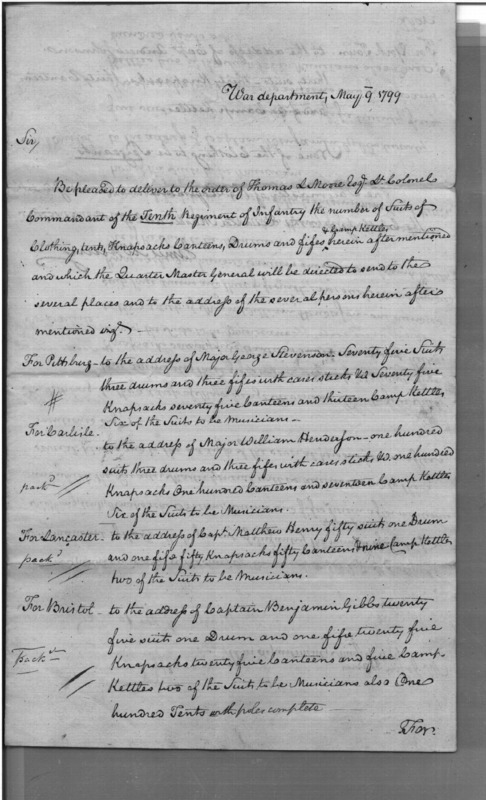 War department, May 9 1799
Sir,
Be pleased to deliver to the order of Thomas L Moore Esqr. Lt. Colonel
Commandant of the Tenth Regiment of Infantry the number of Suits of
& Camp Kettles
Clothing, tents, Knapsacks Canteens, Drums and fifes herein aftermentioned
and which the Quarter Master General will be directed to send to the
several places and to the address of the several persons herein after
mentioned vizt. -
For Pittsburg - to the address of Major George Stevenson. Seventy five Suits
three drums and three fifes with cases sticks &c Seventy five
Knapsacks seventy five Canteens and thirteen Camp Kettles
Six of the Suits to be Musicians -
For Carlisle.
to the address of Major William Henderson - one hundred
suits three drums and three fifes with cases sticks &c. one hundred
packd. // Knapsacks One hundred Canteens and seventeen Camp Kettles
Six of the Suits to be Musicians.
For Lancaster - to the address of Capt. Matthew Henry fifty suits one Drum
packd. // and one fife fifty Knapsacks fifty Canteens & nine Camp Kettles
two of the Suits to be Musicians.
For Bristol - to the address of Captain Benjamin Gibbs twenty
five suits one Drum and one fife twenty five
packd. Knapsacks twenty five Canteens and five Camp-
// Kettles two of the Suits to be Musicians also One
hundred Tents with poles complete -
For.